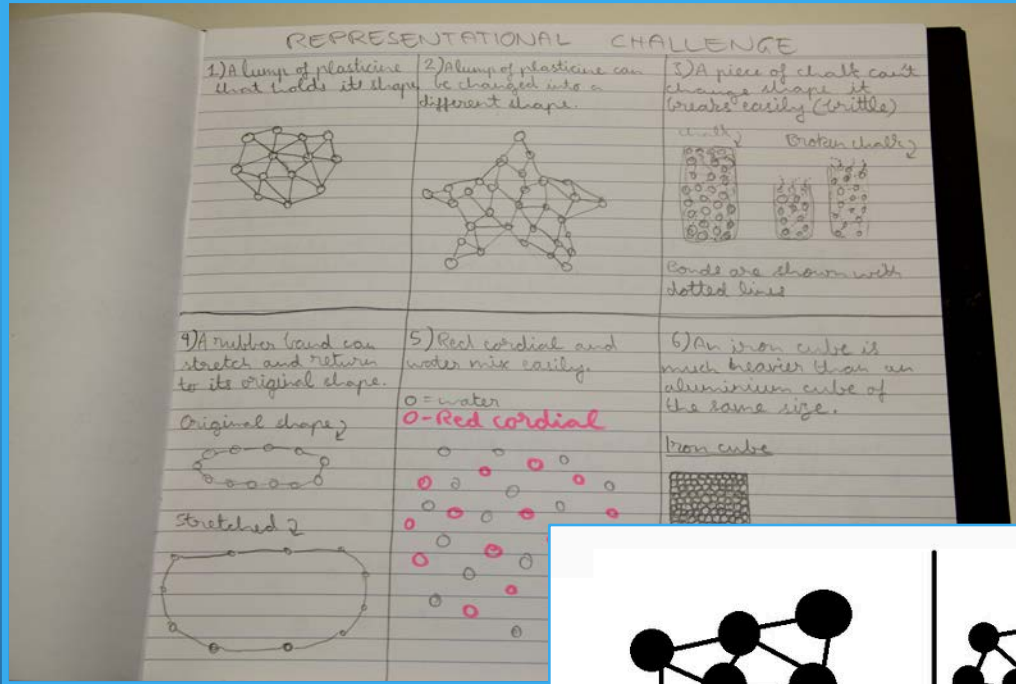 REPRESENTATIONAL CHALLENGE
1) A lump of plasticine
that holds its shape
2) A lump of plasticine can
be changed into a
different shape.
3) A piece of chalk can't
change shape it
breaks easily (brittle)
chalk
Broken chalk
Bonds are shown with
dotted lines
4) A rubber band can
stretch and return
to its original shape.
Original shape
Stretched
5) Red cordial and
water mix easily.
O = water
O - Red cordial
6) An iron cube is
much heavier than an
aluminium cube of
the same size.
Iron cube